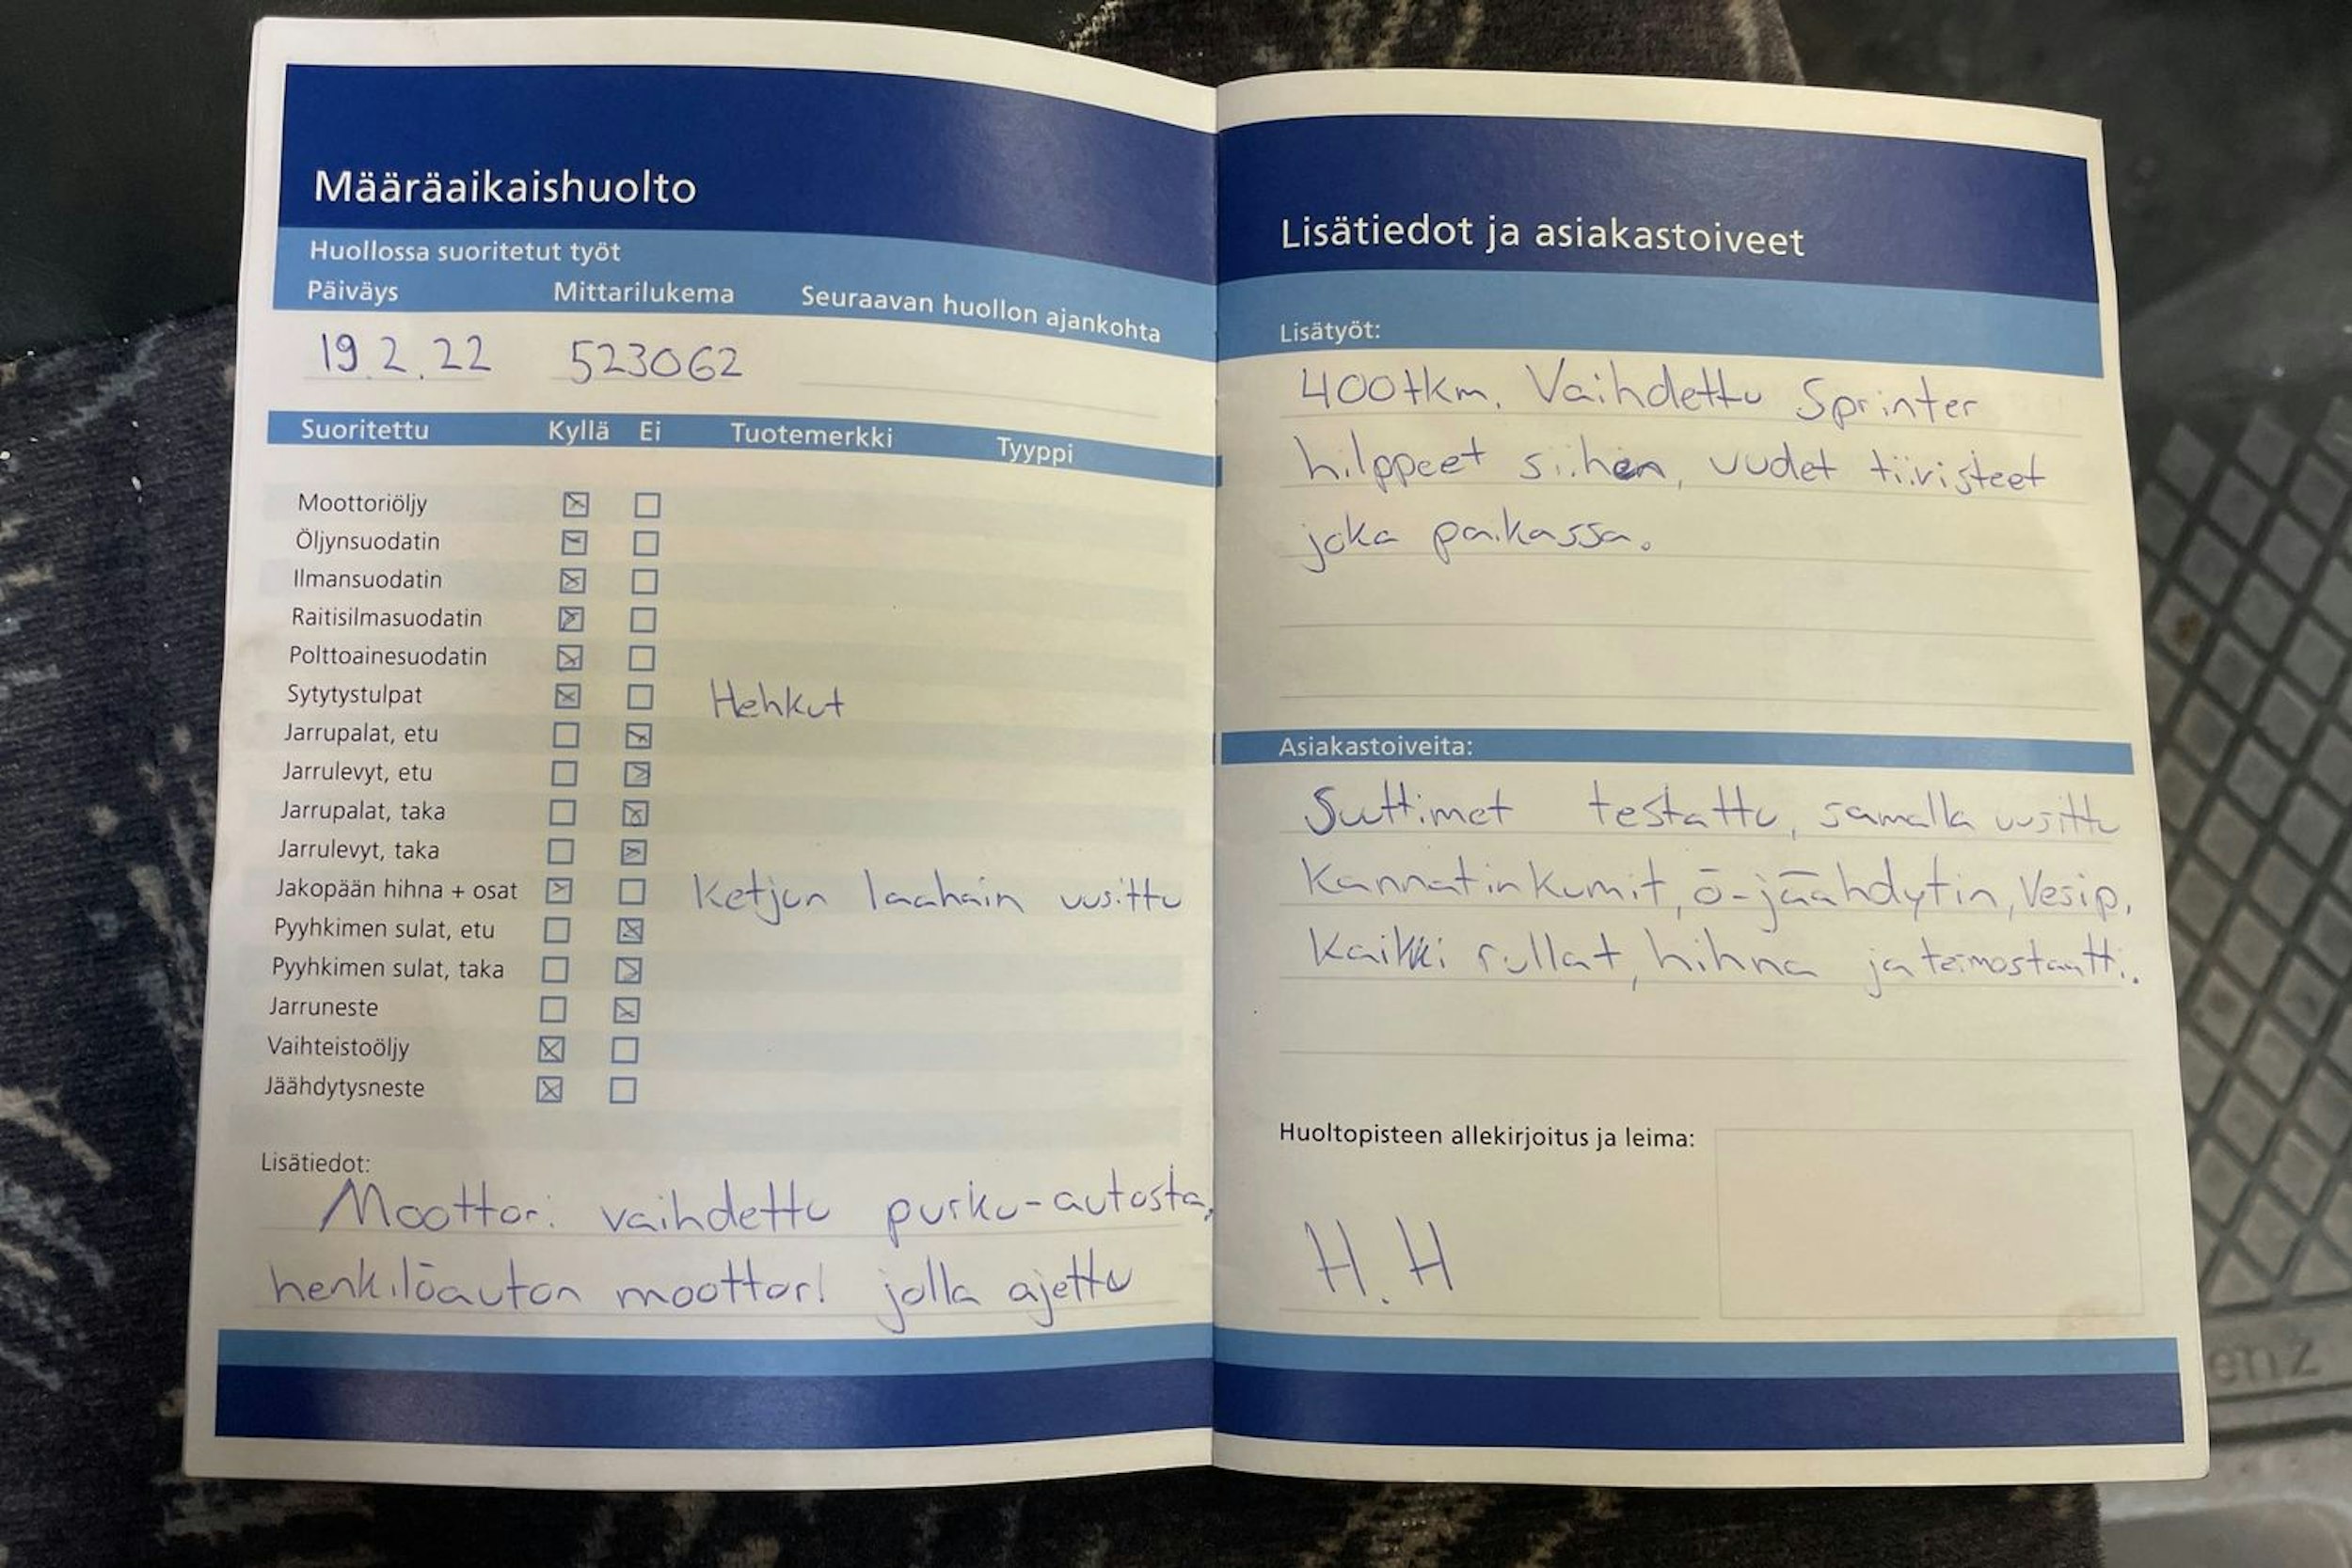 Määräaikaishuolto
Huollossa suoritetut työt
Päiväys Mittarilukema Seuraavan huollon ajankohta
19.2.22 523062
Suoritettu Kyllä Ei Tuotemerkki Tyyppi
Moottoriöljy
Öljynsuodatin
Ilmansuodatin
Raitisilmasuodatin
Polttoainesuodatin
Sytytystulpat Hehkut
Jarrupalat, etu
Jarrulevyt, etu
Jarrupalat, taka
Jarrulevyt, taka
Jakopään hihna + osat Ketjun laahain uusittu
Pyyhkimen sulat, etu
Pyyhkimen sulat, taka
Jarruneste
Vaihteistoöljy
Jäähdytysneste
Lisätiedot:
Moottori vaihdettu purku-autosta,
henkilöauton moottori jolla ajettu
Lisätiedot ja asiakastoiveet
Lisätyöt:
400tkm. Vaihdettu Sprinter
hilppeet siihen, uudet tiivisteet
joka paikassa.
Asiakastoiveita:
Suttimet testattu, samalla uusittu
Kannatinkumit, ö-jäähdytin, Vesip,
Kaikki rullat, hihna ja temostantti.
Huoltopisteen allekirjoitus ja leima:
H.H
enz